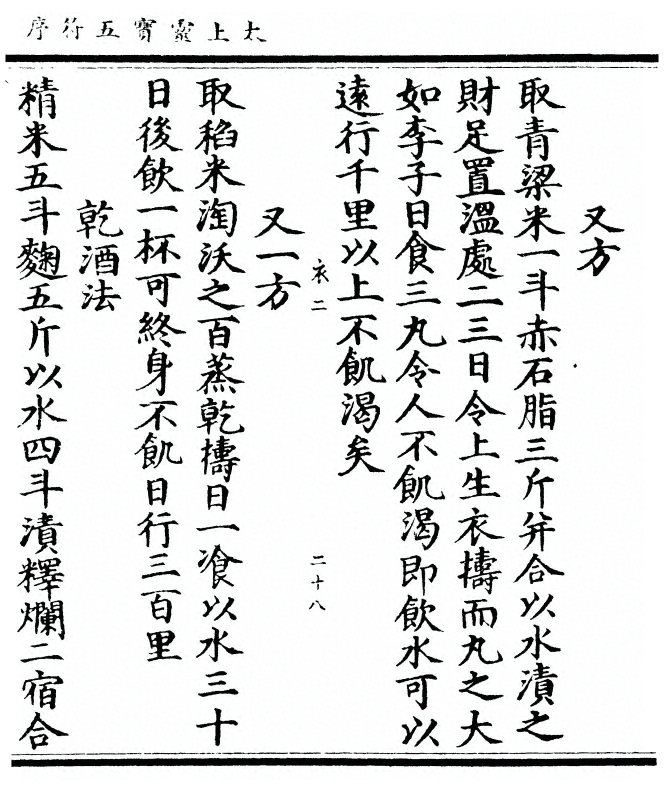 太上靈寶五符序
又方
取青粱米一斗赤石脂三斤并合以水漬之
財足置溫處二三日令上生衣擣而丸之大
如李子日食三丸令人不飢渴即飲水可以
遠行千里以上不飢渴矣
衣二
二十八
又一方
取稻米淘沃之百蒸乾擣日一飡以水三十
日後飲一杯可終身不飢日行三百里
乾酒法
精米五斗麴五斤以水四斗漬釋爛二宿合